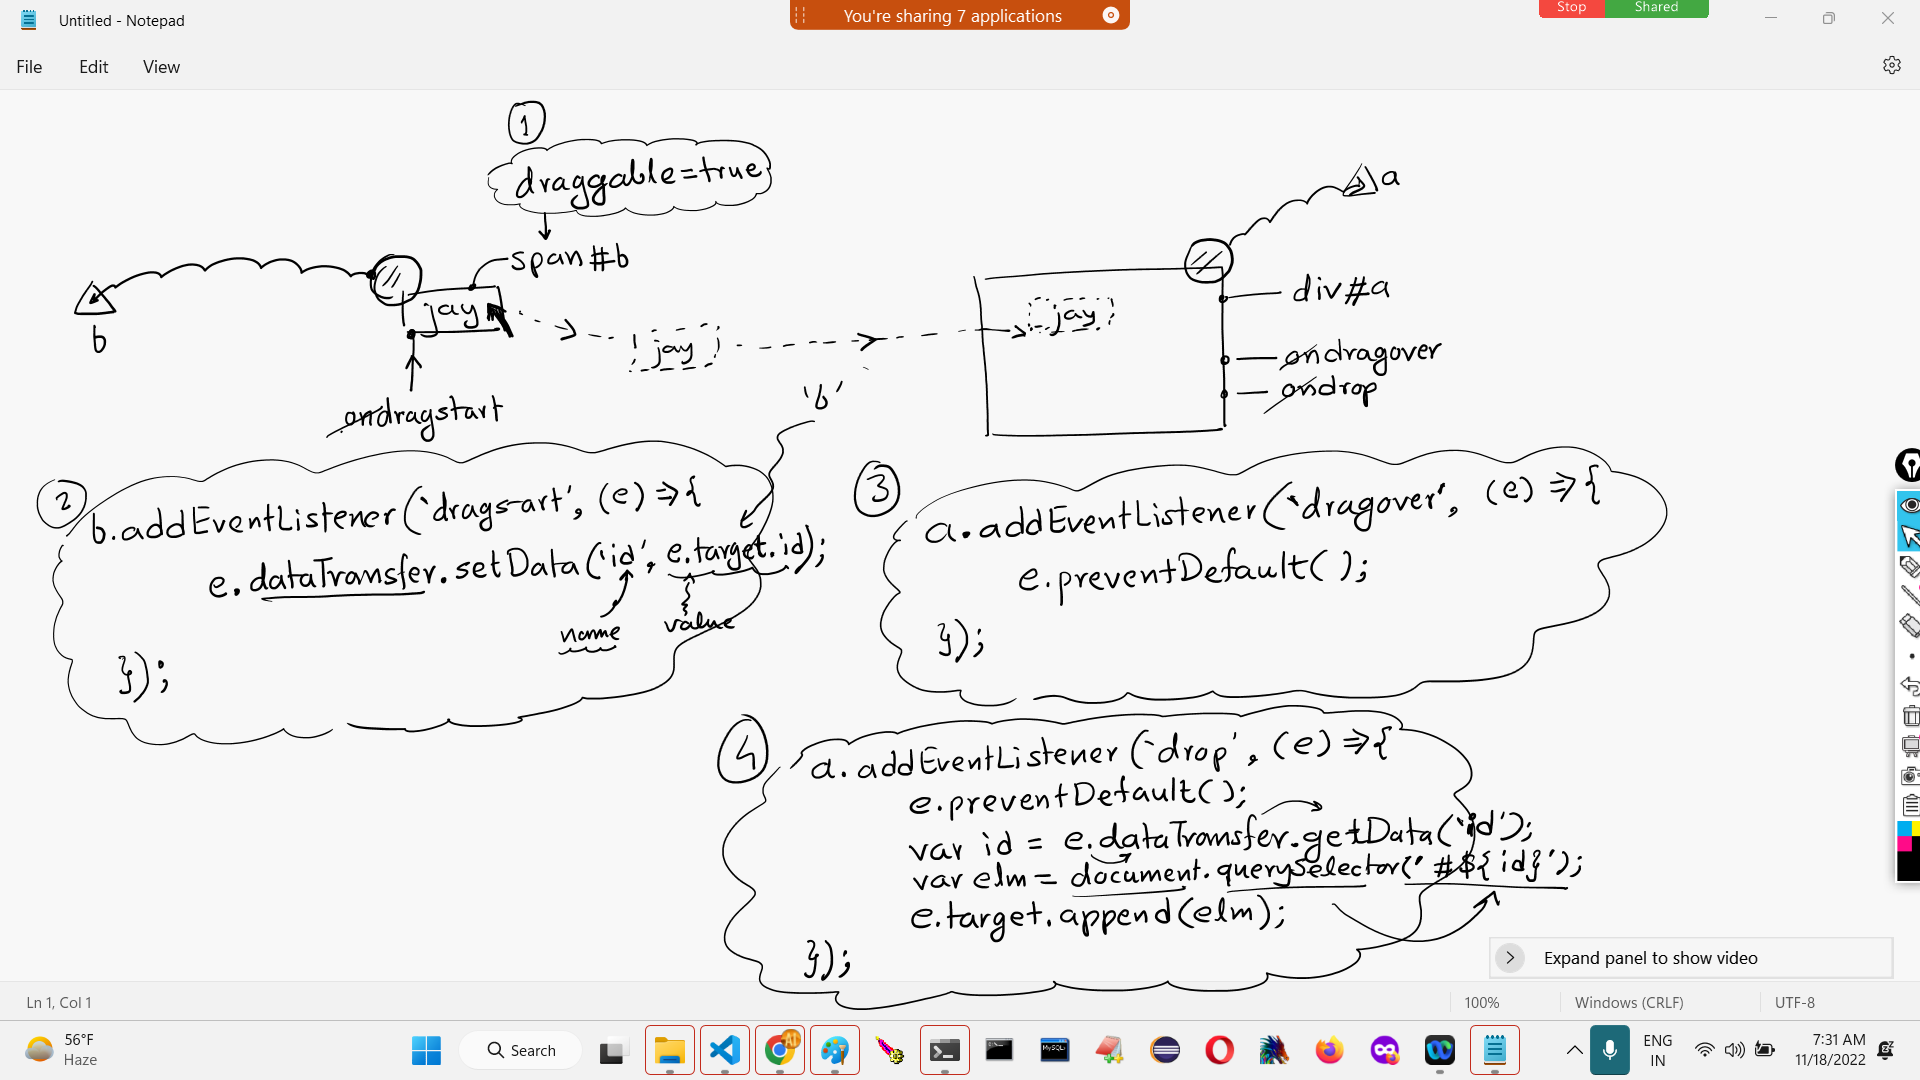 Untitled - Notepad
You're sharing 7 applications
Stop Shared
File Edit View
1
draggable=true
span#b
b
jay
ondragstart
jay
'b'
a
jay
div#a
ondragover
ondrop
2
b.addEventListener('drags-art', (e)=>{
e.dataTransfer.setData('id', e.target.id);
name value
});
3
a.addEventListener('dragover', (e)=>{
e.preventDefault();
});
4
a.addEventListener('drop', (e)=>{
e.preventDefault();
var id = e.dataTransfer.getData('id');
var elm = document.querySelector('#${id}');
e.target.append(elm);
});
Expand panel to show video
Ln 1, Col 1 100% Windows (CRLF) UTF-8
56°F
Haze
Search
AI
MySQL
ENG
IN
7:31 AM
11/18/2022